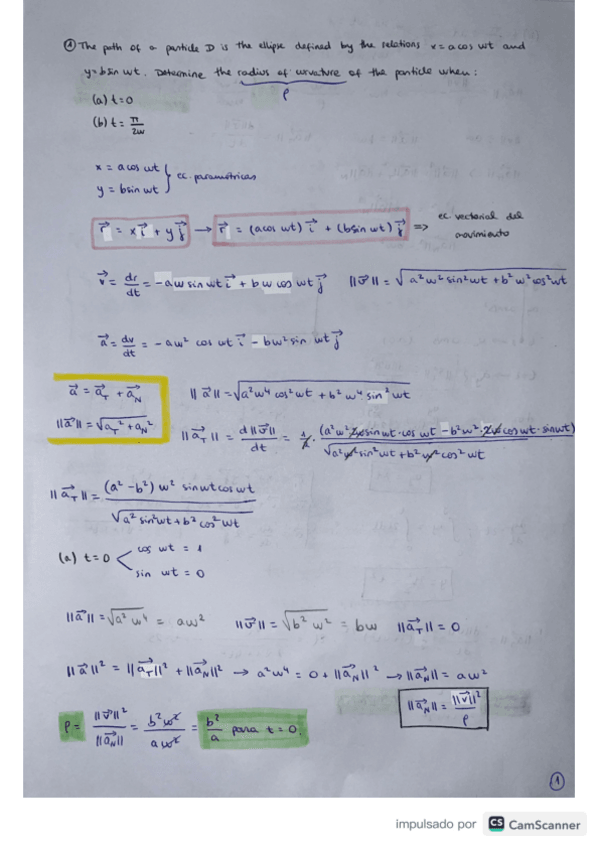 ① The path of a particle D is the ellipse defined by the relations x = a cos wt and
y = b sin wt. Determine the radius of curvature of the particle when:
ρ
(a) t = 0
(b) t = π/2w
x = a cos wt
y = b sin wt } ec. paramétricas
r⃗ = x i⃗ + y j⃗ → r⃗ = (a cos wt) i⃗ + (b sin wt) j⃗ => ec vectorial del movimiento
v⃗ = dr/dt = -aw sin wt i⃗ + b w cos wt j⃗ ||v⃗|| = √(a²w² sin² wt + b² w² cos² wt)
a⃗ = dv/dt = -aw² cos wt i⃗ - bw² sin wt j⃗
a⃗ = a⃗_T + a⃗_N ||a⃗|| = √(a² w⁴ cos² wt + b² w⁴ sin² wt)
||a⃗|| = √(a_T² + a_N²) ||a⃗_T|| = d||v⃗||/dt = 1/2 · (a²w² 2w sin wt · cos wt - b²w² · 2w cos wt · sin wt)/√(a²w² sin² wt + b² w² cos² wt)
||a⃗_T|| = (a² - b²) w² sin wt cos wt / √(a² sin² wt + b² cos² wt)
(a) t = 0 < cos wt = 1
sin wt = 0
||a⃗|| = √(a² w⁴) = aw² ||v⃗|| = √(b² w²) = bw ||a⃗_T|| = 0
||a⃗||² = ||a⃗_T||² + ||a⃗_N||² → a² w⁴ = 0 + ||a⃗_N||² → ||a⃗_N|| = aw²
||a⃗_N|| = ||v⃗||²/ρ
ρ = ||v⃗||²/||a⃗_N|| = b² w²/a w² = b²/a para t = 0.
①
impulsado por CS CamScanner